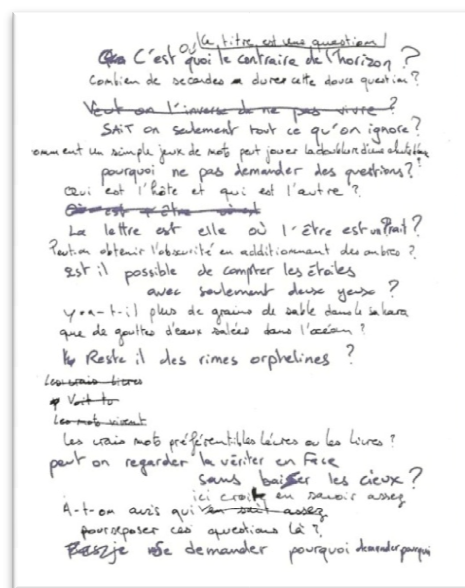 Ou (Ce titre est une question)
C'est quoi le contraire de l'horizon ?
Combien de secondes a durer cette douce question ?
Veut on l'inverse de ne pas vivre ?
SAIT on seulement tout ce qu'on ignore ?
omment un simple jeux de mots peut jouer la doublure d'une
pourquoi ne pas demander des questions ?
Qui est l'hôte et qui est l'autre ?
La lettre est elle où l'être est
Peut on obtenir l'obscurité en additionnant des ombres ?
Est il possible de compter les étoiles
avec seulement deux yeux ?
y-a-t-il plus de grains de sable dans le sahara
que de gouttes d'eaux salées dans l'océan ?
Reste il des rimes orphelines ?
Les vrais livres
Voit tu
Les mots vivent
Les vrais mots préférent ils les lèvres ou les livres ?
peut on regarder la vériter en Face
sans baisser les cieux ?
ici croit en savoir assez
A-t-on avis qui en sait assez
pour se poser ces questions là ?
je me demander pourquoi demander pourquoi